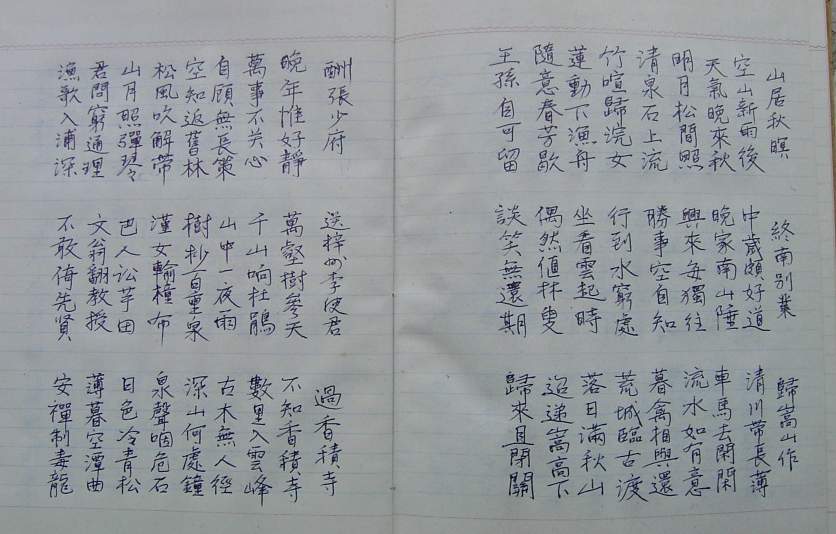 山居秋暝
空山新雨後
天氣晚來秋
明月松間照
清泉石上流
竹喧歸浣女
蓮動下漁舟
隨意春芳歇
王孫自可留
終南別業
中歲頗好道
晚家南山陲
興來每獨往
勝事空自知
行到水窮處
坐看雲起時
偶然值林叟
談笑無還期
歸嵩山作
清川帶長薄
車馬去閑閑
流水如有意
暮禽相與還
荒城臨古渡
落日滿秋山
迢递嵩高下
歸來且閉關
酬張少府
晚年惟好靜
萬事不关心
自顧無長策
空知返舊林
松風吹解帶
山月照彈琴
君問窮通理
漁歌入浦深
送梓州李使君
萬壑樹參天
千山响杜鵑
山中一夜雨
樹杪百重泉
漢女輸橦布
巴人訟芋田
文翁翻教授
不敢倚先賢
過香積寺
不知香積寺
數里入雲峰
古木無人徑
深山何處鐘
泉聲咽危石
日色冷青松
薄暮空潭曲
安禪制毒龍